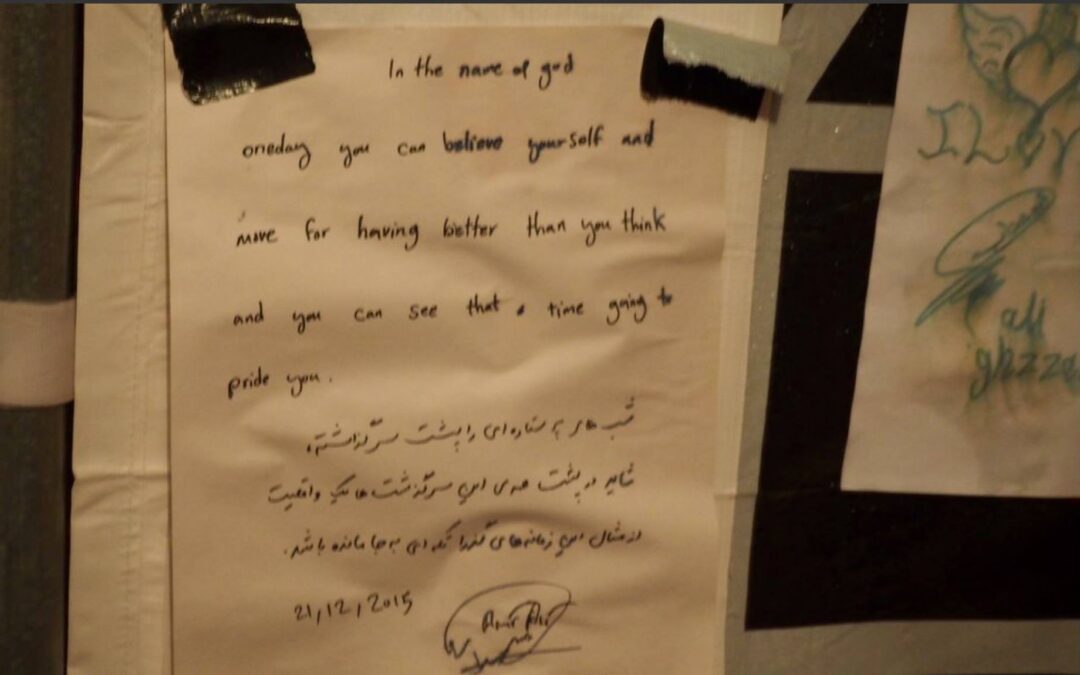 In the name of god
oneday you can believe yourself and
move for having better than you think
and you can see that a time going to
pride you.
شب های پر ستاره ای را پشت سر گذاشته،
شاید در پشت همه ی این سرگذشت ها یک واقعیت
از مثال این زمانه های گذرا که ای به جا مانده باشد.
21,12,2015
Amir Ali
I Luv
ali
ghzza